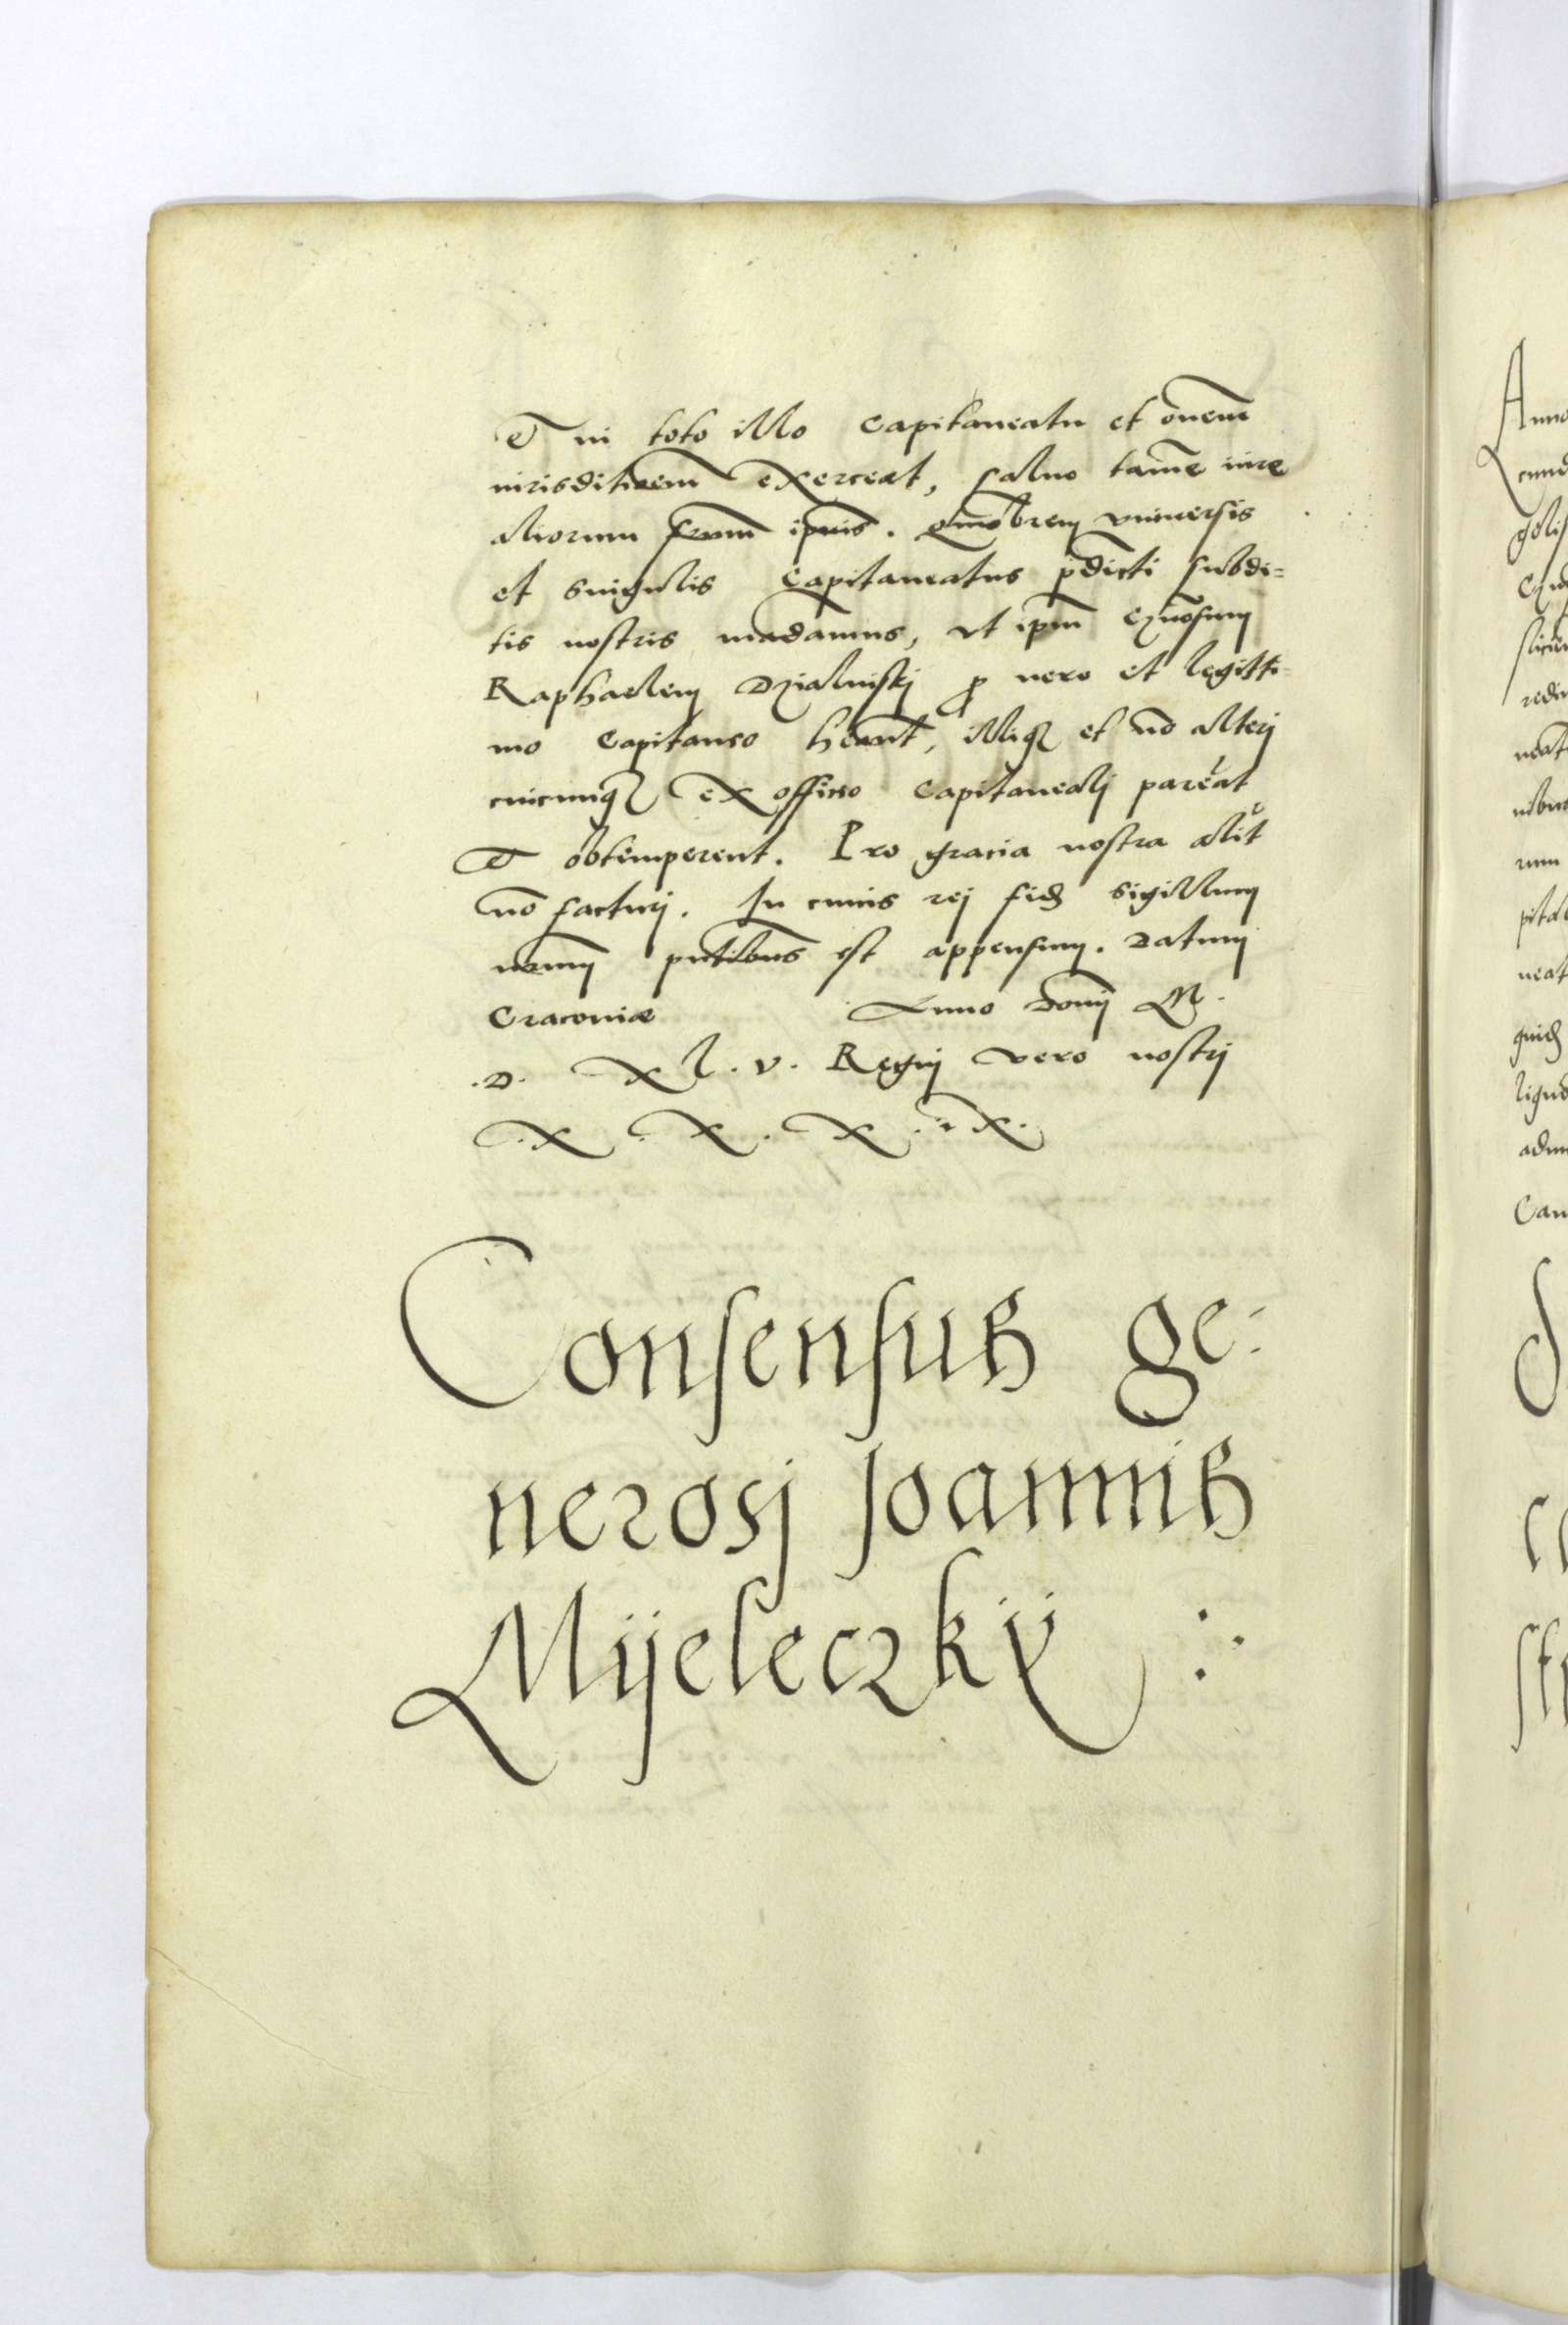 Et in toto illo Capitaneatu et om̄em
iurisdit̄ioem exerceat, saluo tamē iure
aliorum frum̄ ip̄ius. Quāobrem vniuersis
et singulis Capitaneatus p̄dicti subdi=
tis nostris mādamus, vt ip̄m G̃nosum
Raphaelem Dzialinskj ꝓ vero et legitti=
mo Capitaneo hēant, illiqꝫ et nō alterj
cuicunqꝫ ex officio Capitanealj pareāt
Et obtemperent. Pro gracia nostra alit̄
nō facturj. In cuius rej fidē sigillum
n̄rum pn̄tibus est appensum. Datum
Cracouiæ Anno Domj M.
.D. Xl.v. Regnj vero nostrj
.X.X.X.ix.
Consensus ge:
nerosj Joannis
Mijeleczkij
Anno